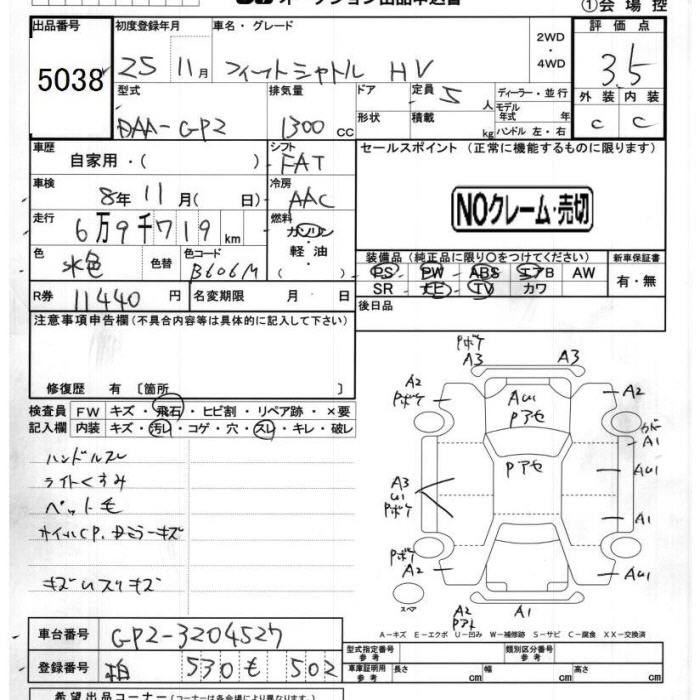 オークション出品申込書
①会場控
出品番号 初度登録年月 車名・グレード 2WD・4WD 評価点
5038 25 11月 フィットシャトル HV 3.5
型式 排気量 ドア 定員 5人 ディーラー・並行 外装 内装
DAA-GP2 1300cc 形状 積載 kg モデル年式 年 ハンドル 左・右 C C
車歴 自家用・( ) シフト FAT セールスポイント (正常に機能するものに限ります)
車検 8年11月( 日) 冷房 AAC
NOクレーム・売切
走行 6万9千719km 燃料 ガソリン・軽油・( )
色 水色 色替 色コード B606M
装備品 (純正品に限り〇をつけてください) 新車保証書
PS PW ABS エアB AW 有・無
SR ナビ TV カワ
R券 11440円 名変期限 月 日 後日品
注意事項申告欄 (不具合内容等は具体的に記入して下さい)
修復歴 有 〔箇所 〕
検査員 FW キズ・飛石・ヒビ割・リペア跡・×要
記入欄 内装 キズ・汚レ・コゲ・穴・スレ・キレ・破レ
ハンドルスレ
ライトくすみ
ペット毛
オイルCP. Dミラーキズ
キズUスリキズ
Pボケ
A3 A3
A2 AU1 A2
Pボケ Pアセ
カバー
A1
Pアセ
A3 AU1
U1
Pボケ
A1
Pボケ
A2 AU1
スペア
A2 A1
Pアト
A-キズ E-エクボ U-凹み W-補修跡 S-サビ C-腐食 XX-交換済
車台番号 GP2-3204527
型式指定番号 参考 類別区分番号 参考
登録番号 柏 530 も 502
車庫証明用 参考 長さ cm 幅 cm 高さ cm
希望出品コーナー